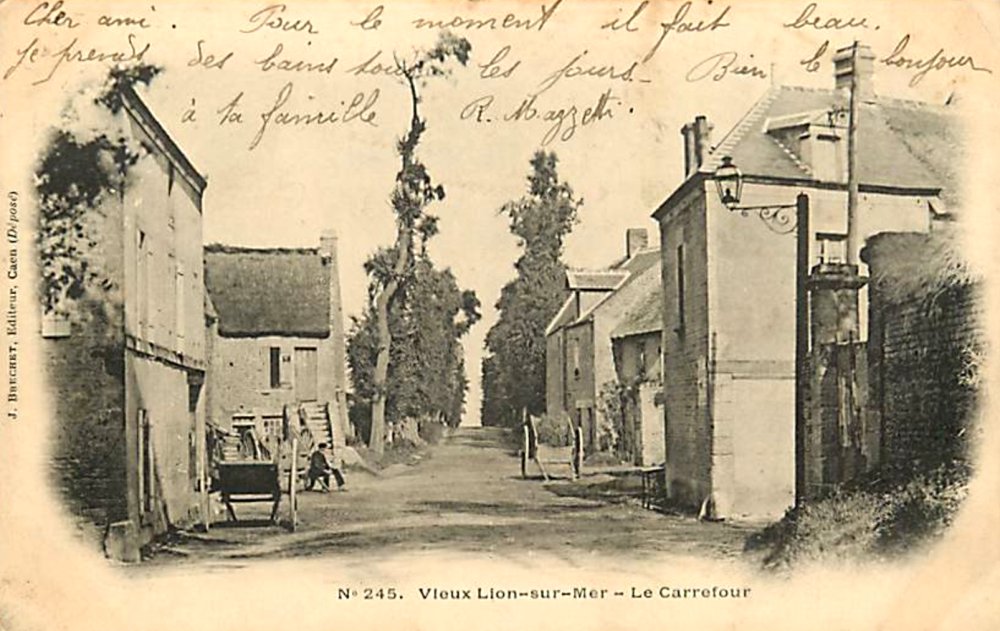 Cher ami. Pour le moment il fait beau.
je prends des bains tous les jours - Bien le bonjour
à ta famille R. Mazzetti.
J. BRECHET, Editeur, Caen (Déposé)
No 245. Vieux Lion-sur-Mer - Le Carrefour